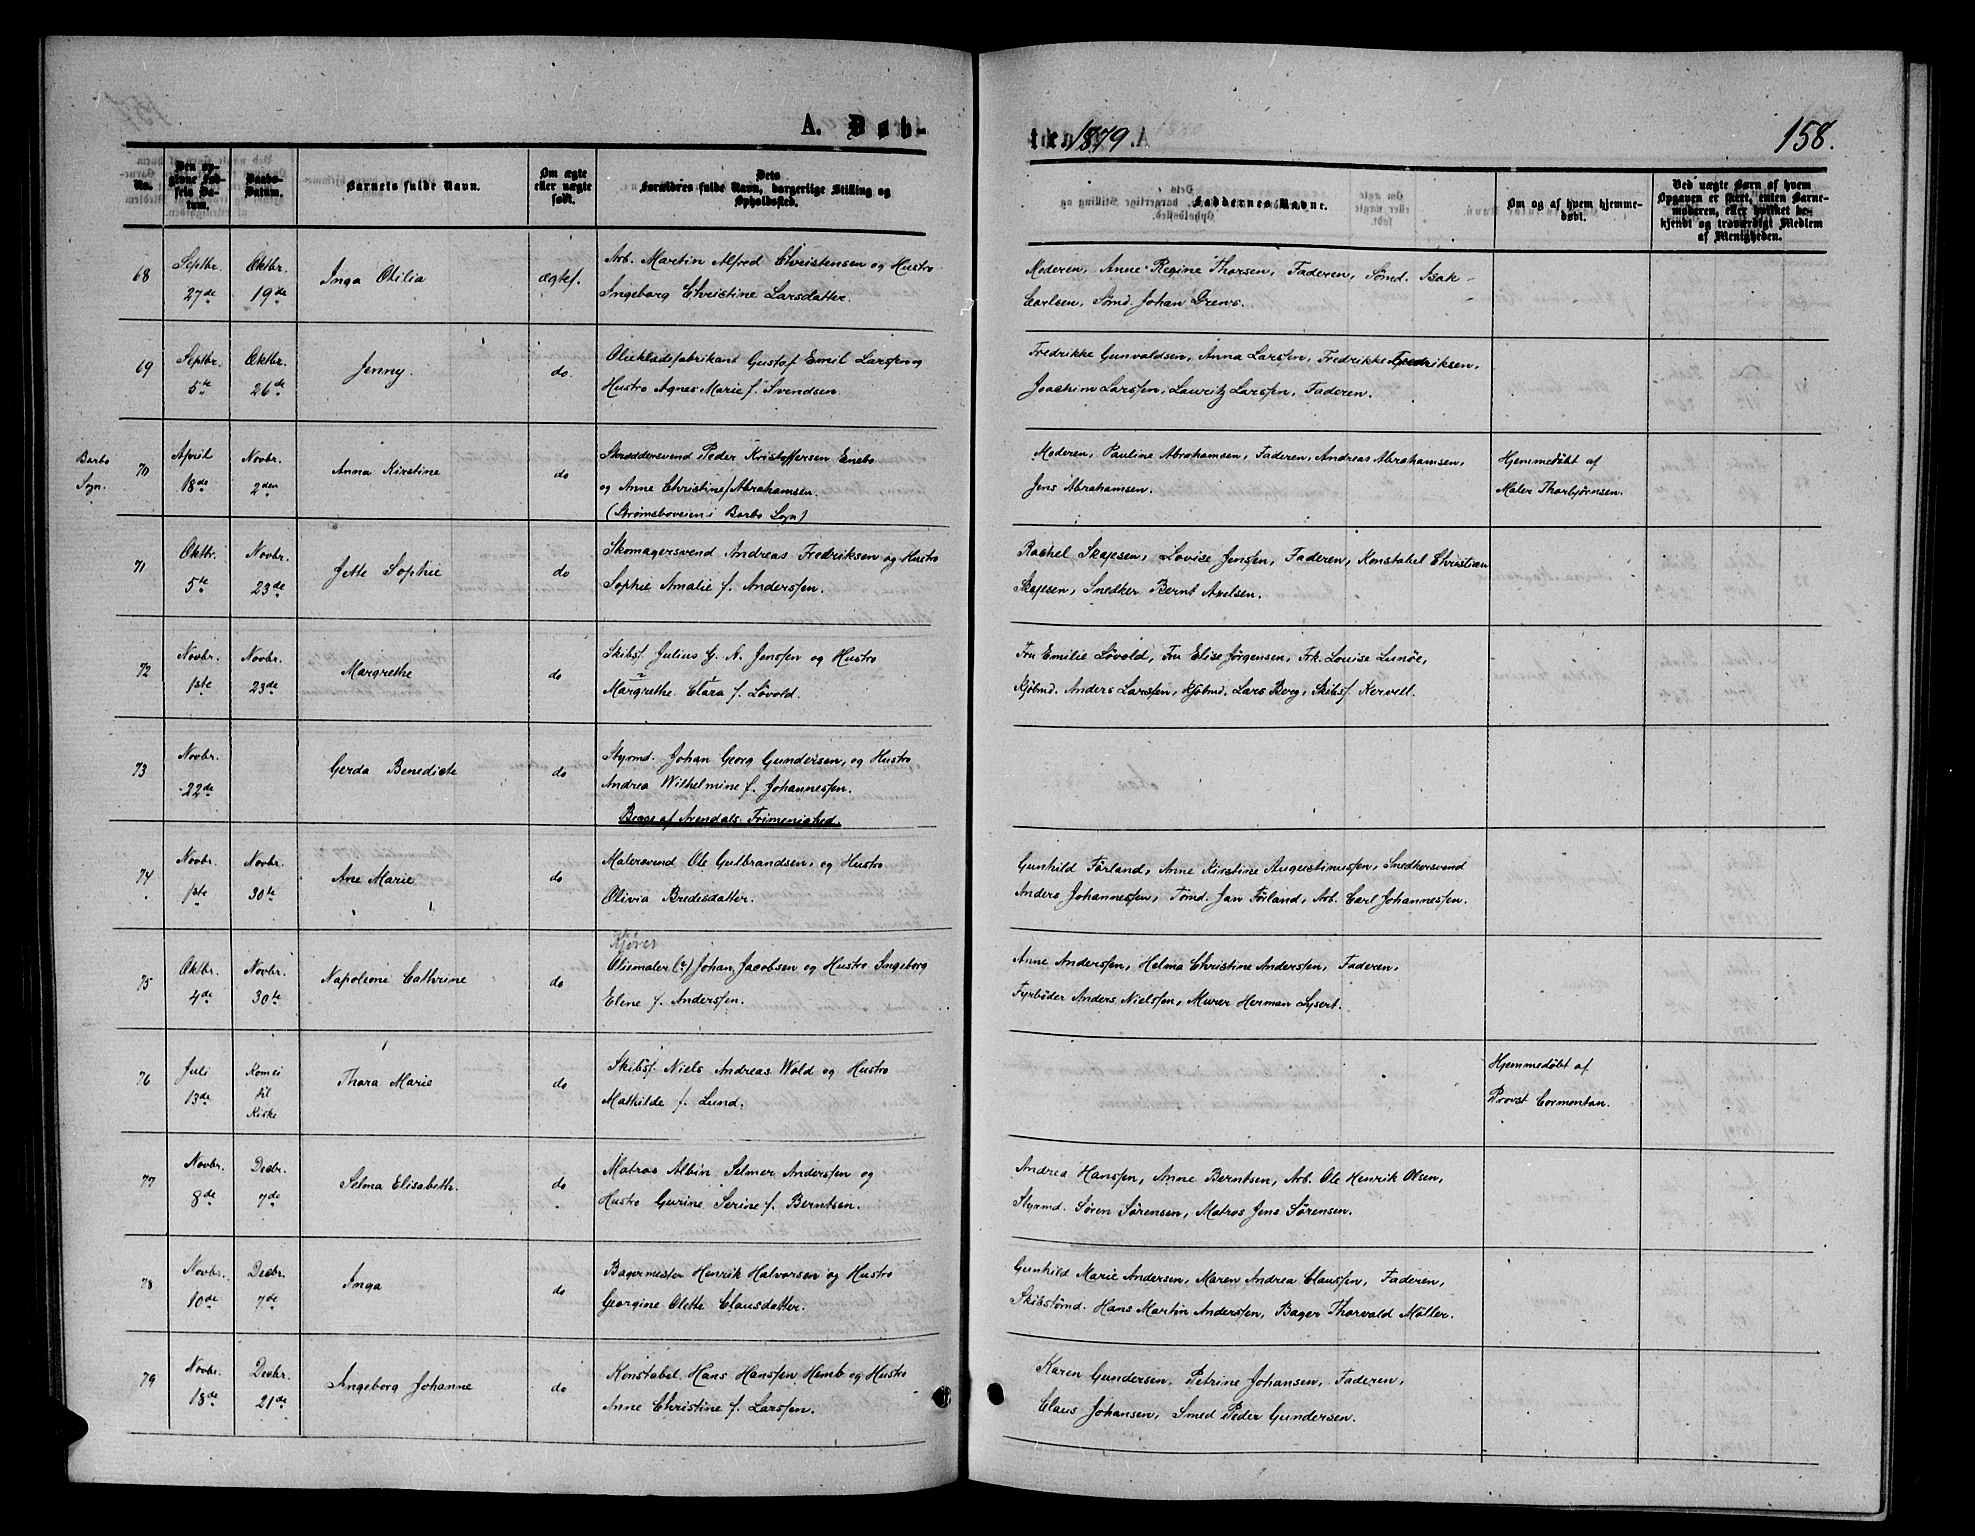 A. Døb-
te i 1879
158.
No.
Den op-
givne Fød-
sels Da-
tum.
Daabs-
Datum.
Barnets fulde Navn.
Om ægte
eller uægte
født.
Dets
Forældres fulde Navn, borgerlige Stilling og
Opholdssted.
Faddernes Navne.
Om og af hvem hjemme-
døbt.
Ved uægte Børn af hvem
Opgaven er skeet, enten Barne-
moderen, eller hvilket be-
kjendt og troværdigt Medlem
af Menigheden.
68
Septbr.
27de
Oktbr.
19de
Inga Otilia
ægtef.
Arb. Martin Alfred Christensen og Hustro
Ingeborg Christine Larsdatter.
Moderen, Anne Regine Thorsen, Faderen, Sømd. Isak
Carlsen, Sømd. Johan Drews.
69
Septbr.
5te
Oktbr.
26de
Jenny.
do.
Oliekladefabrikant Gustaf Emil Larssen og
Hustro Agnes Marie f. Svendsen.
Fredrikke Gunvaldsen, Anna Larssen, Fredrikke Fredriksen,
Joachim Larssen, Lauritz Larssen, Faderen.
Barbo
Sogn.
70
April
18de
Novbr.
2den
Anna Kirstine
do
Skræddersvend Peder Kristoffersen Enebo
og Anne Christine f. Abrahamsen.
(Strømsboveien i Barbo Sogn)
Moderen, Pauline Abrahamsen, Faderen, Andreas Abrahamsen,
Jens Abrahamsen.
Hjemmedøbt af
Maler Thorbjørnsen.
71
Oktbr.
5te
Novbr.
23de
Jette Sophie
do
Skomagersvend Andreas Fredriksen og Hustro
Sophie Amalie f. Anderssen.
Rachel Skajesen, Lovise Jenssen, Faderen, Konstabel Christian
Skajesen, Snedker Bernt Axelsen.
72
Novbr.
1ste
Novbr.
23de
Margrethe
do
Skibsf. Julius G. N. Jenssen og Hustro
Margrethe Clara f. Løvold.
Fru Emilie Løvold, Fru Elise Jörgensen, Frk. Louise Lunøe,
Kjøbmd. Anders Larssen, Kjøbmd. Lars Berg, Skibsf. Kervell.
73
Novbr.
22de
Gerda Benedicte
do
Styrmd. Johan Georg Gundersen, og Hustro
Andrea Wilhelmine f. Johannessen.
Begge af Arendals Frimenighed.
74
Novbr.
1ste
Novbr.
30te
Ane Marie
do
Malersvend Ole Gulbrandsen, og Hustro
Olivia Bredesdatter.
Gunhild Förland, Anne Kirstine Augustinussen, Snedkersvend
Anders Johannessen, Tømd. Jan Förland, Arb. Carl Johannessen.
75
Oktbr.
4de
Novbr.
30te
Napoleone Cathrine
do
Kjører
Oliemaler (?) Johan Jacobsen og Hustro Ingeborg
Elene f. Anderssen.
Anne Anderssen, Helma Christine Anderssen, Faderen,
Fyrbøder Anders Nielssen, Murer Herman Lysert.
76
Juli
13de
Kom ei
til
Kirke
Thora Marie
do
Skibsf. Niels Andreas Wold og Hustro
Mathilde f. Lund.
Hjemmedøbt af
Provst Cormontan.
77
Novbr.
8de
Decbr.
7de
Selma Elisabeth.
do
Matros Albin Selmer Anderssen og
Hustro Gurine Serine f. Berntsen.
Andrea Hanssen, Anne Berntsen, Arb. Ole Henrik Olsen,
Styrmd. Sören Sørensen, Matros Jens Sørensen.
78
Novbr.
10de
Decbr.
7de
Inga
do
Bagermester Henrik Halvorsen og Hustro
Georgine Olette Clausdatter.
Gunhild Marie Andersen, Maren Andrea Claussen, Faderen,
Skibstømd. Hans Martin Anderssen, Bager Thorvald Möller.
79
Novbr.
18de
Decbr.
21de
Ingeborg Johanne
do
Konstabel Hans Hanssen Hemb og Hustro
Anne Christine f. Larssen.
Karen Gundersen, Petrine Johansen, Faderen,
Claus Johansen, Smed Peder Gundersen.